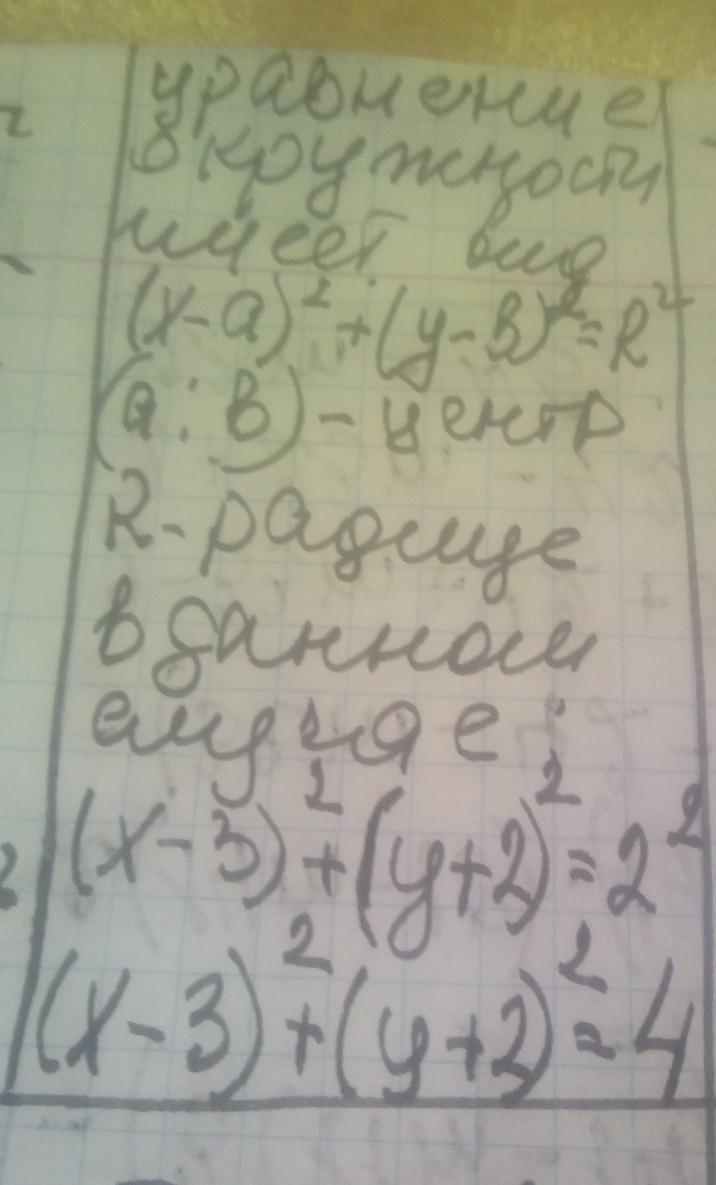 уравнение
окружности
имеет вид
(x-a)²+(y-в)²=R²
(a;в)-центр
R-радиус
в данном
случае:
(x-3)²+(y+2)²=2²
(x-3)²+(y+2)²=4